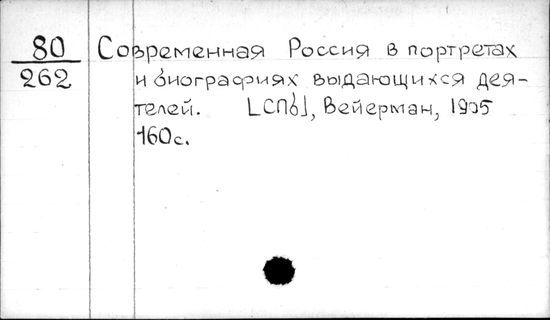 80 Современная Россия в портретах
262 и биографиях выдающихся дея-
телей. [СПб], Вейерман, 1905
160с.